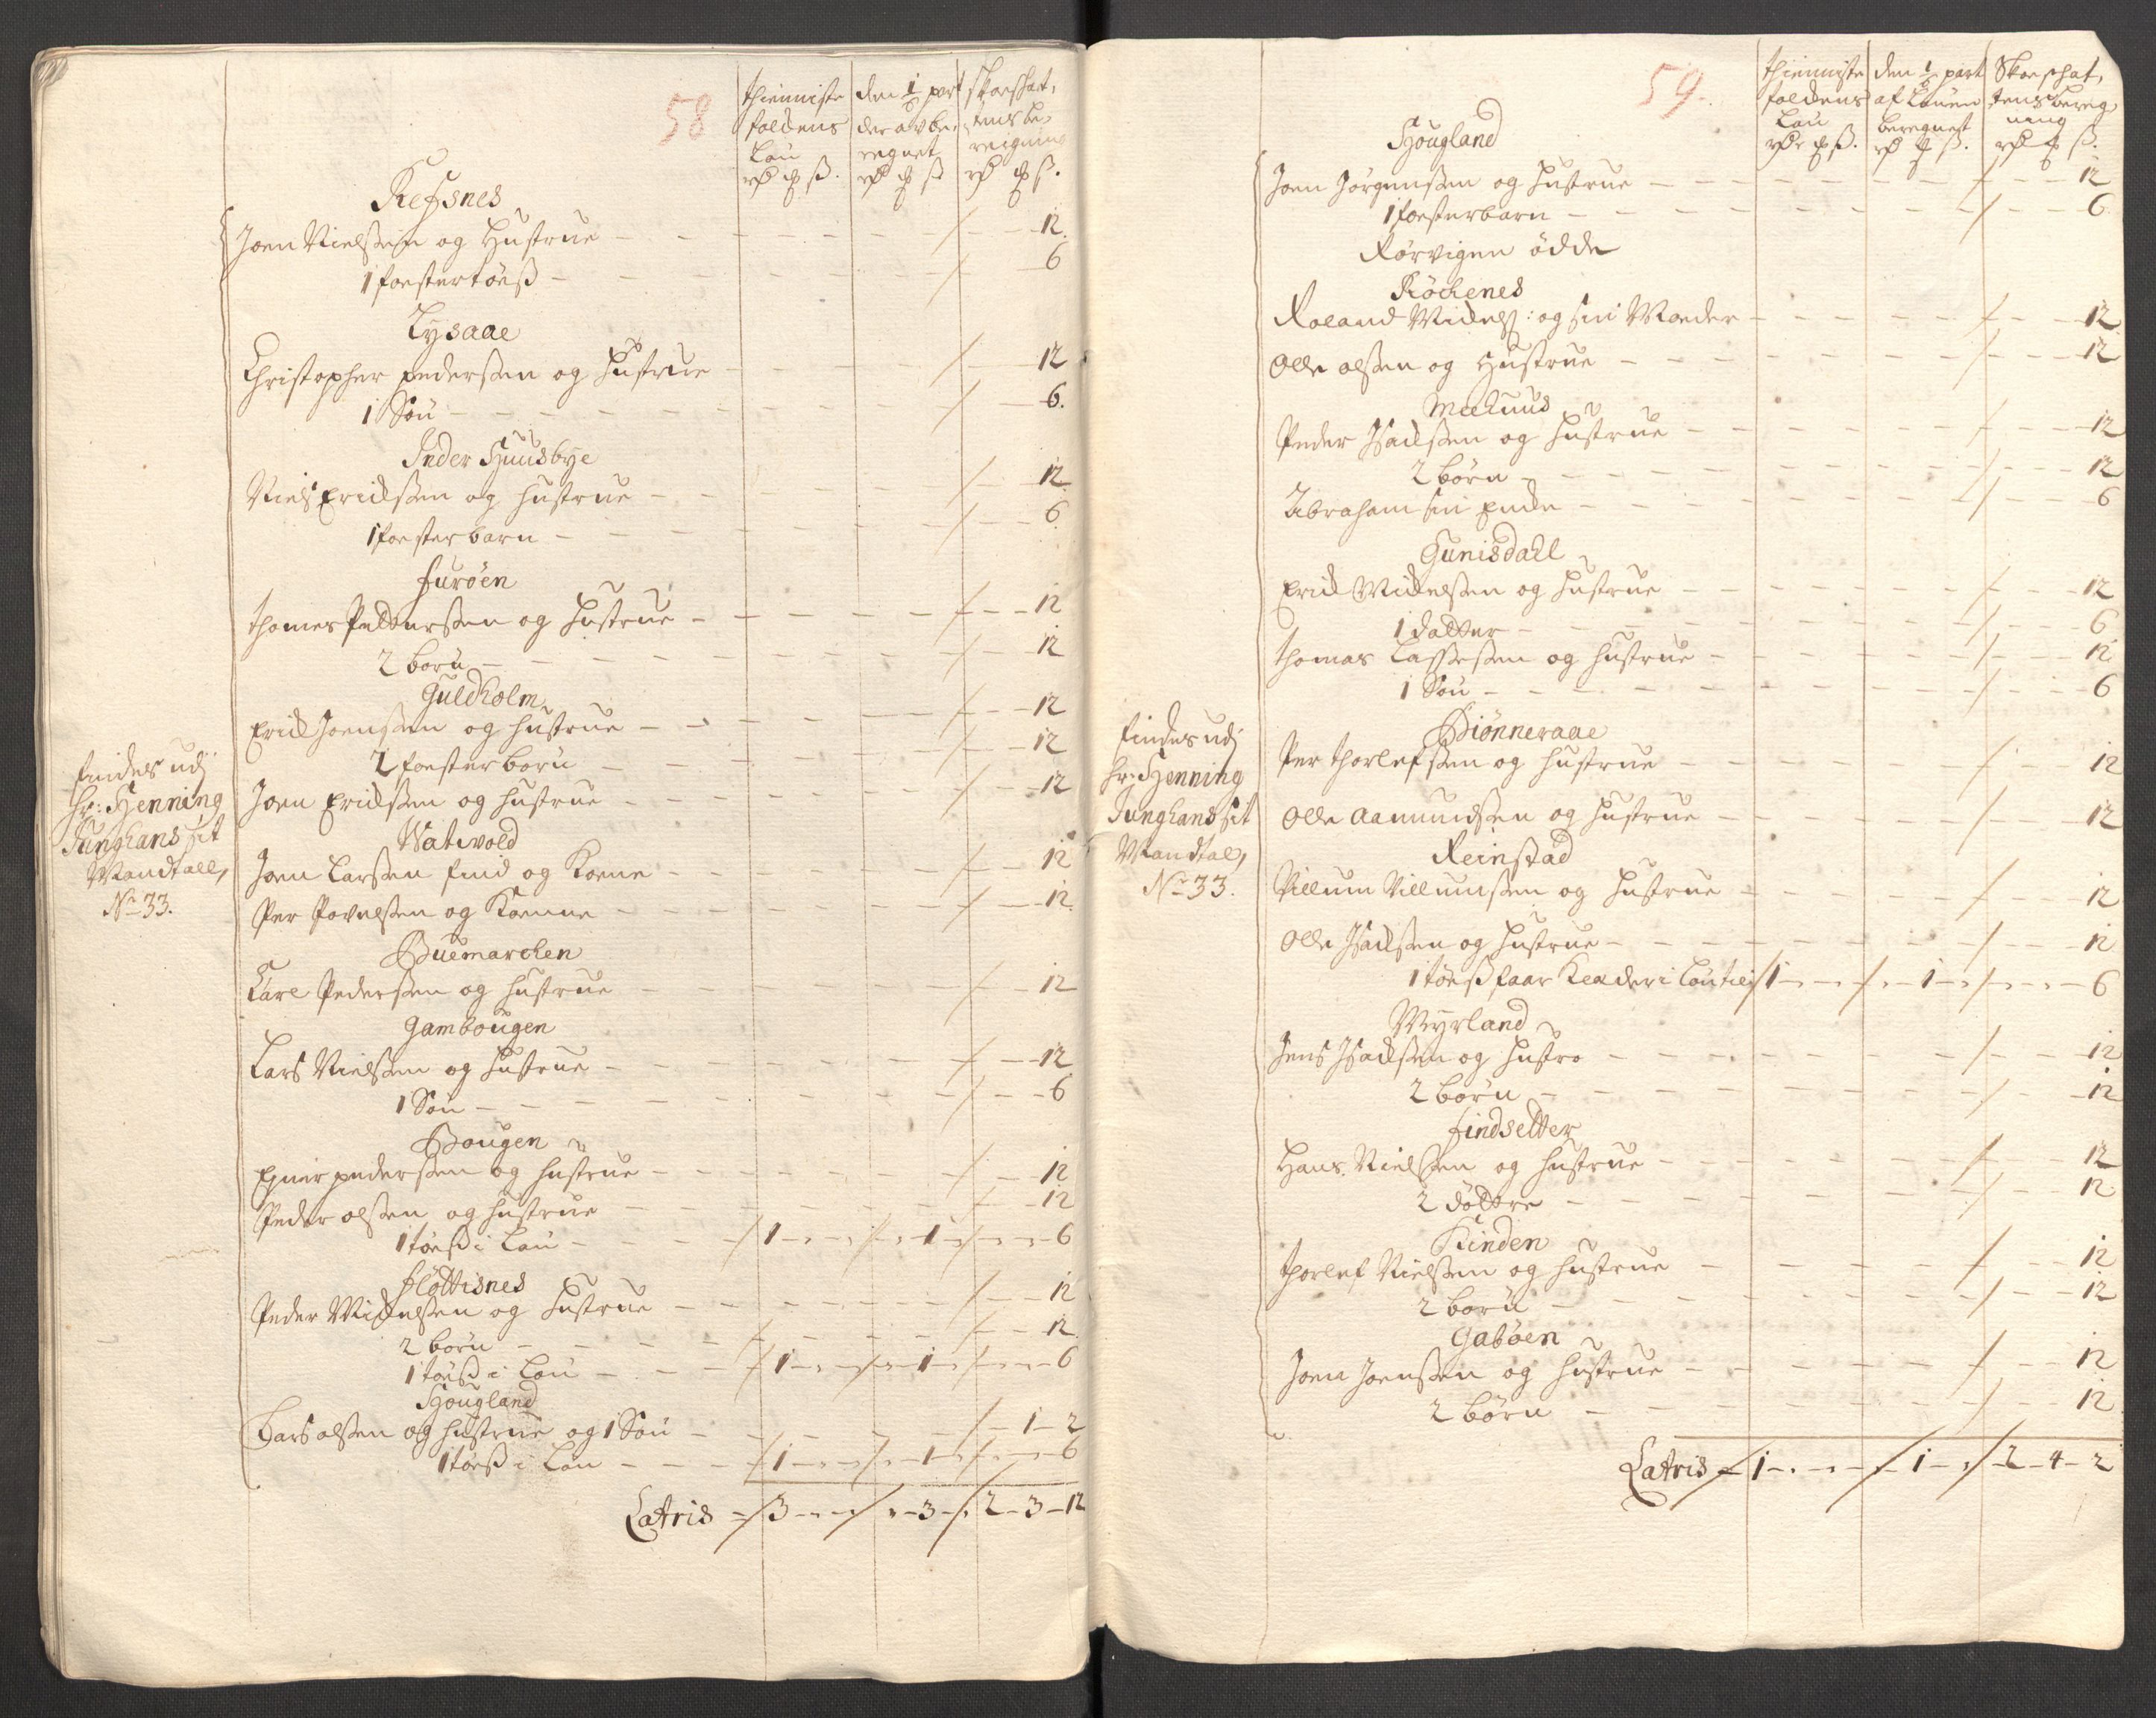 58
thienniste foldens Løn rdr ort ß.
den 1/6 part der av be-regnet rdr ort ß
skoeskat-tens be-reigning rdr ort ß.
Refsnes
Joen Nielssen og Hustrue - 12.
1 fostertøeß - 6
Lysaae
Christopher Pederssen og Hustrue - 12
1 Søn - 6.
Inder Huusbye
Niels Erichssen og Hustrue - 12.
1 fosterbarn - 6.
Furøen
Thomes Pettersen og Hustrue - 12
2 børn - 12
Guldholm
Erich Joenssen og Hustrue - 12
2 fosterbørn - 12
Joen Erichssen og Hustrue - 12
Watwold
Joen Larssen find og Kone - 12
Per Povelssen og Konne - 12.
Buemarchen
Carl Pederssen og Hustrue - 12
Gambougen
Lars Nielssen og Hustrue - 12
1 Søn - 6
Bougen
Ejner Pederssen og Hustrue - 12
Peder Olssen og Hustrue - 12
1 tøeß i Løn - 1 - 1 - 6
Fløttisnes
Peder Michelssen og Hustrue - 12
2 børn - 12.
1 tøeß i Løn - 1 - 1 - 6
Hougland
Lars Olssen og Hustrue og 1 Søn - 1 - 2
1 tøeß i Løn - 1 - 1 - 6
Latris - 3 - 3 - 2 - 3 - 12
findes udj
Hr: Henning
Junghans sit
Mandtall,
No 33.
59.
thienniste foldens Løn rdr ort ß.
den 1/6 part af Lønen beregnet rdr ort ß.
Skoeschat-tens bereg-ning rdr ort ß.
Hougland
Joen Jørgenssen og Hustrue - 12
1 fosterbarn - 6
Rørvigen ödde
Röchenes
Roeland Michels: og sin Moeder - 12
Olle Olssen og Hustrue - 12
Meehuus
Peder Isachssen og Hustrue - 12
2 børn - 12
Abraham sin Encke - 6
Gunisdall
Erich Michelssen og Hustrue - 12
1 datter - 6
Thomas Lassessen og Hustrue - 12
1 Søn - 6
Biønneraae
Per Thorlefssen og Hustrue - 12
Olle Aamundssen og Hustrue - 12
Reinstad
Villum Villumssen og Hustrue - 12
Olle Isachssen og Hustrue - 12
1 tøeß faar Kleder i Løn til - 1 - 1 - 6
Myrland
Jens Isachssen og Hustro - 12
2 børn - 12
Findsetter
Hans Nielssen og Hustrue - 12
2 döttre - 12
Kinden
Thorlef Nielssen og Hustrue - 12
2 børn - 12
Gabøen
Joen Joenssen og Hustrue - 12
2 børn - 12
Latris - 1 - 1 - 2 - 4 - 2
findes udj
Hr: Henning
Junghans sit
Mandtal,
No 33.